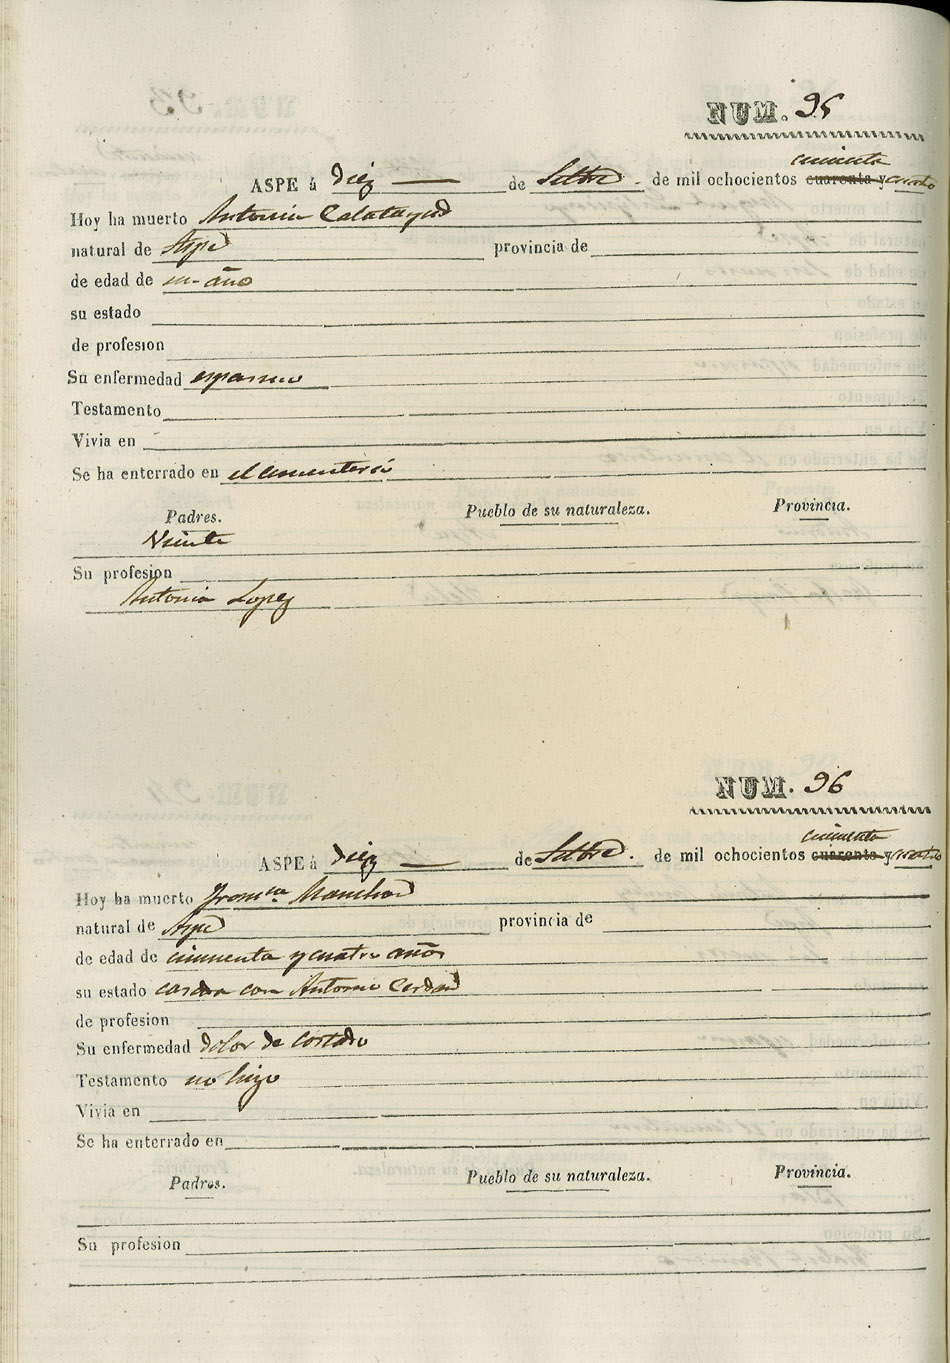 NUM. 95
cincuenta
ASPE á Diez de Setbre. de mil ochocientos cuarenta y cuatro
Hoy ha muerto Antonia Calatayud
natural de Aspe provincia de
de edad de un año
su estado
de profesion
Su enfermedad espasmo
Testamento
Vivia en
Se ha enterrado en el cementerio
Padres. Pueblo de su naturaleza. Provincia.
Vicente
Su profesion
Antonia Lopez
NUM. 96
cincuenta
ASPE á Diez de Setbre. de mil ochocientos cuarenta y cuatro
Hoy ha muerto Franca. Manchon
natural de Aspe provincia de
de edad de cincuenta y cuatro años
su estado casada con Antonio Cerdan
de profesion
Su enfermedad dolor de costado
Testamento no hizo
Vivia en
Se ha enterrado en
Padres. Pueblo de su naturaleza. Provincia.
Su profesion